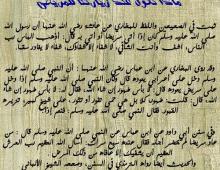 ماذا تقول عند زيارتك للمريض
ثبت في الصحيحين واللفظ للبخاري عن عائشة رضي الله عنها أن رسول الله
صلى الله عليه وسلم كان إذا أتى مريضا أو أتي به قال: أذهب الباس رب
الناس، اشف وأنت الشافي، لا شفاء إلا شفاؤك، شفاء لا يغادر سقما.
وقد روى البخاري عن ابن عباس رضي الله عنهما أن النبي صلى الله عليه
وسلم دخل على أعرابي يعوده قال: وكان النبي صلى الله عليه وسلم إذا دخل
على مريض يعوده قال: لا بأس طهور إن شاء الله
قال: قلت: طهور كلا بل هي حمى تفور أو تثور، على شيخ كبير، تزيره
القبور فقال النبي صلى الله عليه وسلم: فنعم إذا
وفي سنن أبي داود عن ابن عباس عن النبي صلى الله عليه وسلم قال: من
عاد مريضا لم يحضر أجله فقال عنده سبع مرار: أسأل الله العظيم رب العرش
العظيم أن يشفيك إلا عافاه الله من ذلك المرض.
والحديث أيضا رواه الترمذي في السنن، وصححه الشيخ الألباني